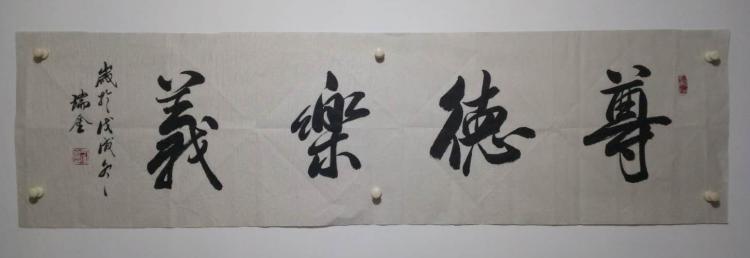 尊德樂義
歲於戊戌冬
瑞奎